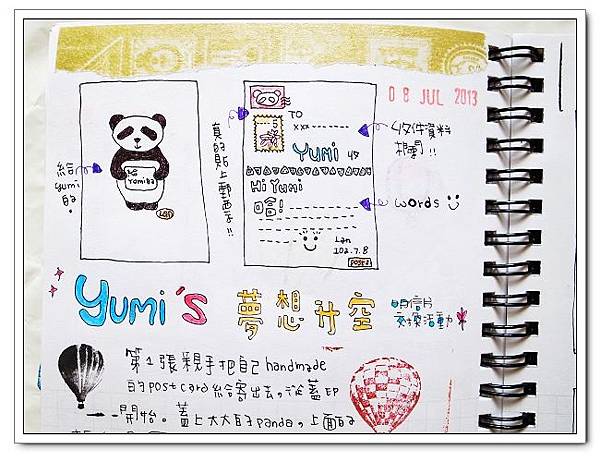 08 JUL 2013
給
yumi
的。
給
Yomiba
Lan
真的貼上郵票!!
5
TO
xxx
Yumi 收
Hi Yumi
嗨!
Lan
102.7.8
post
收件資料
相關!!
words
yumi's 夢想升空
明信片
交換活動
第1張親手把自己handmade
的postcard給寄出去,從蓋印
開始。蓋上大大的panda,上面的